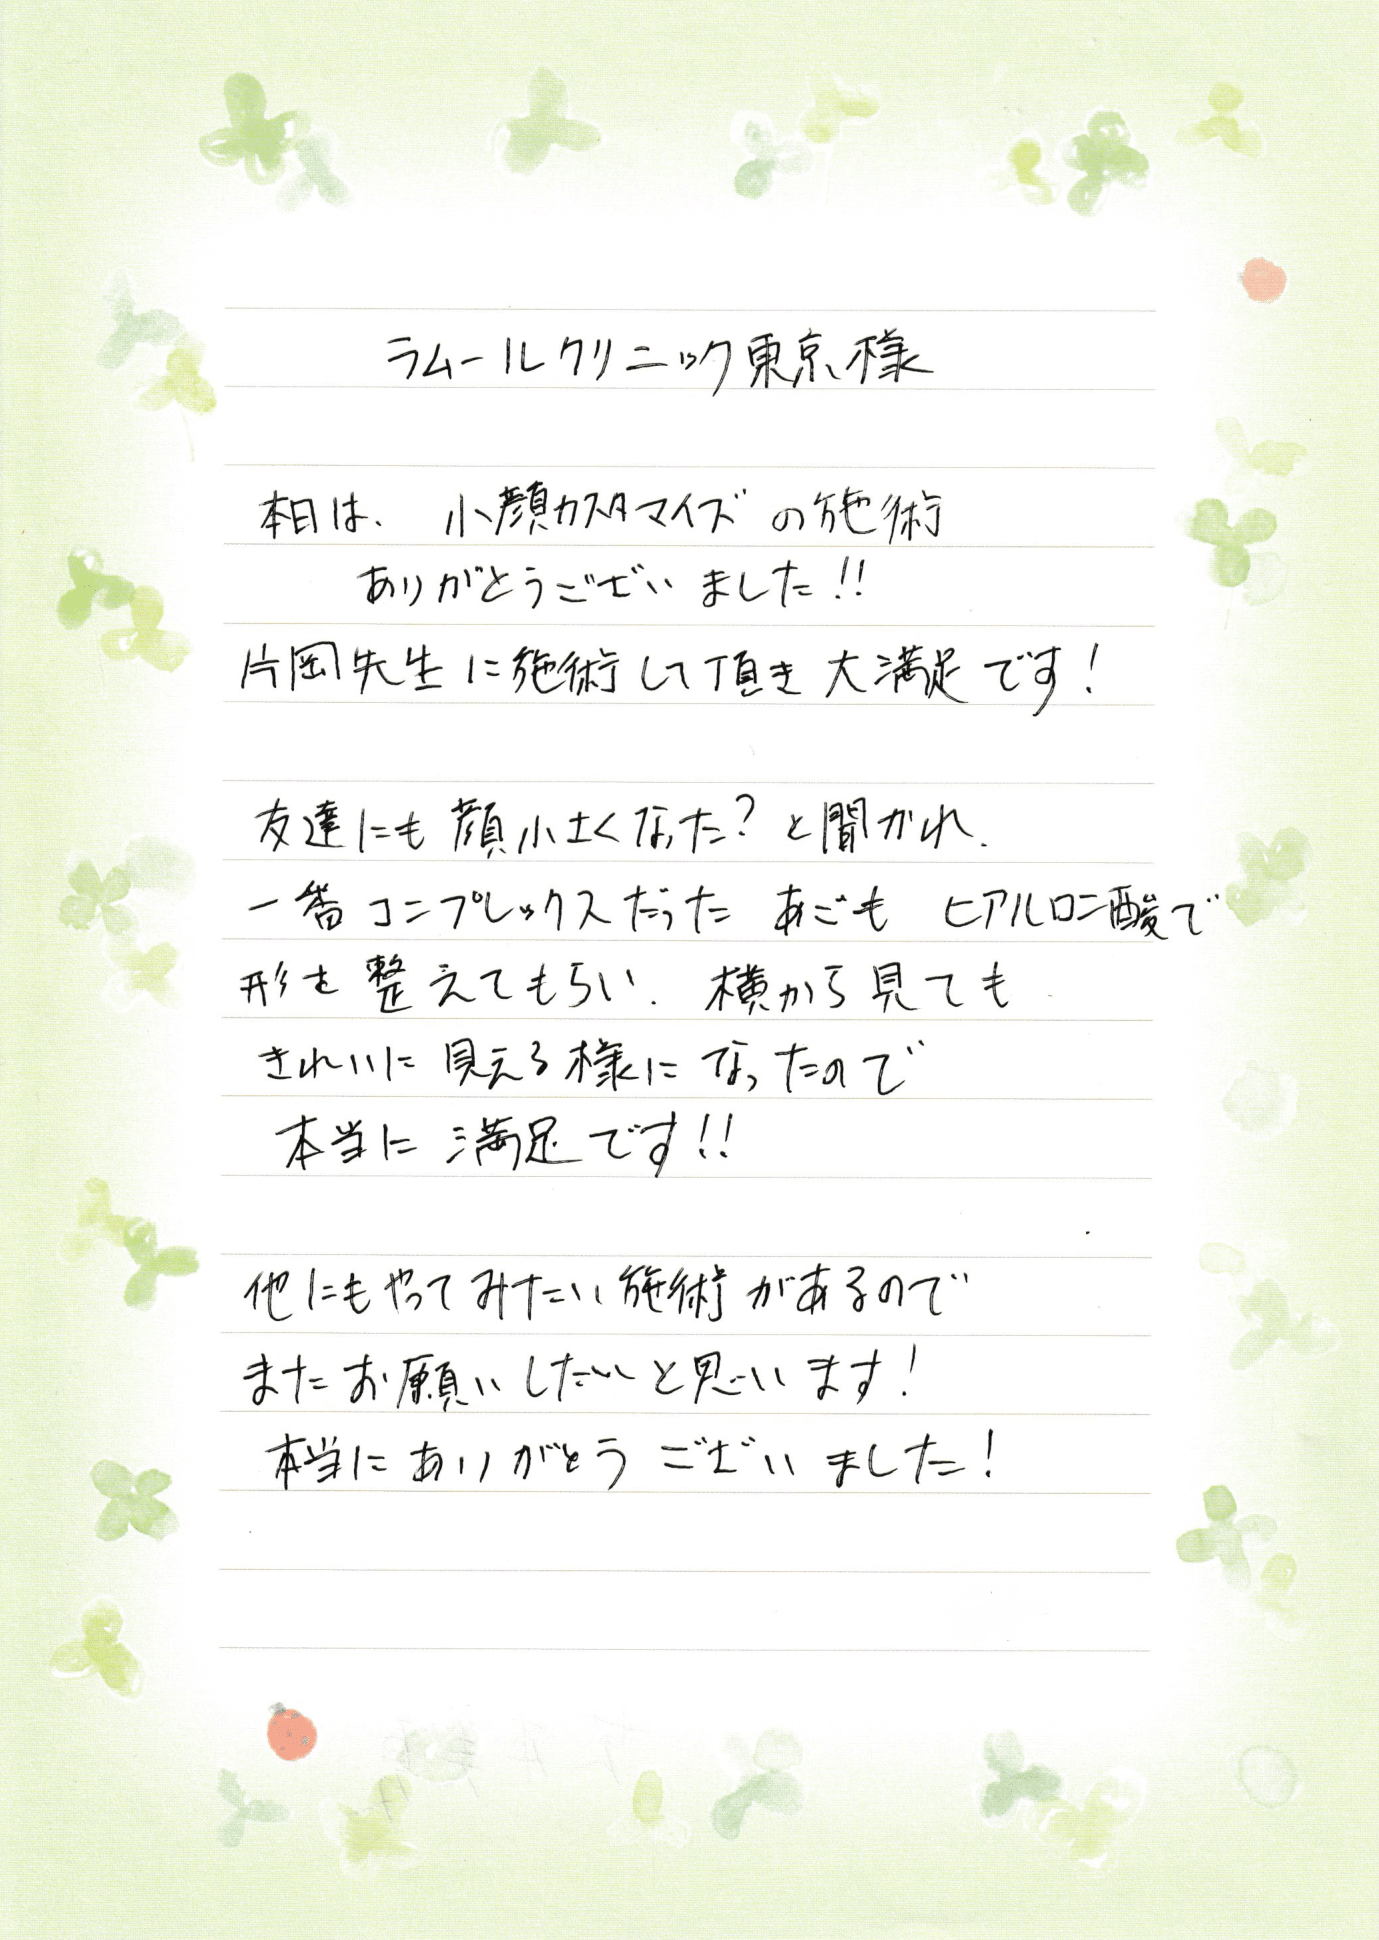 ラムールクリニック東京様
本日は、小顔カスタマイズの施術
ありがとうございました!!
片岡先生に施術して頂き大満足です!
友達にも顔小さくなった?と聞かれ、
一番コンプレックスだったあごもヒアルロン酸で
形を整えてもらい、横から見ても
きれいに見える様になったので
本当に満足です!!
他にもやってみたい施術があるので
またお願いしたいと思います!
本当にありがとうございました!